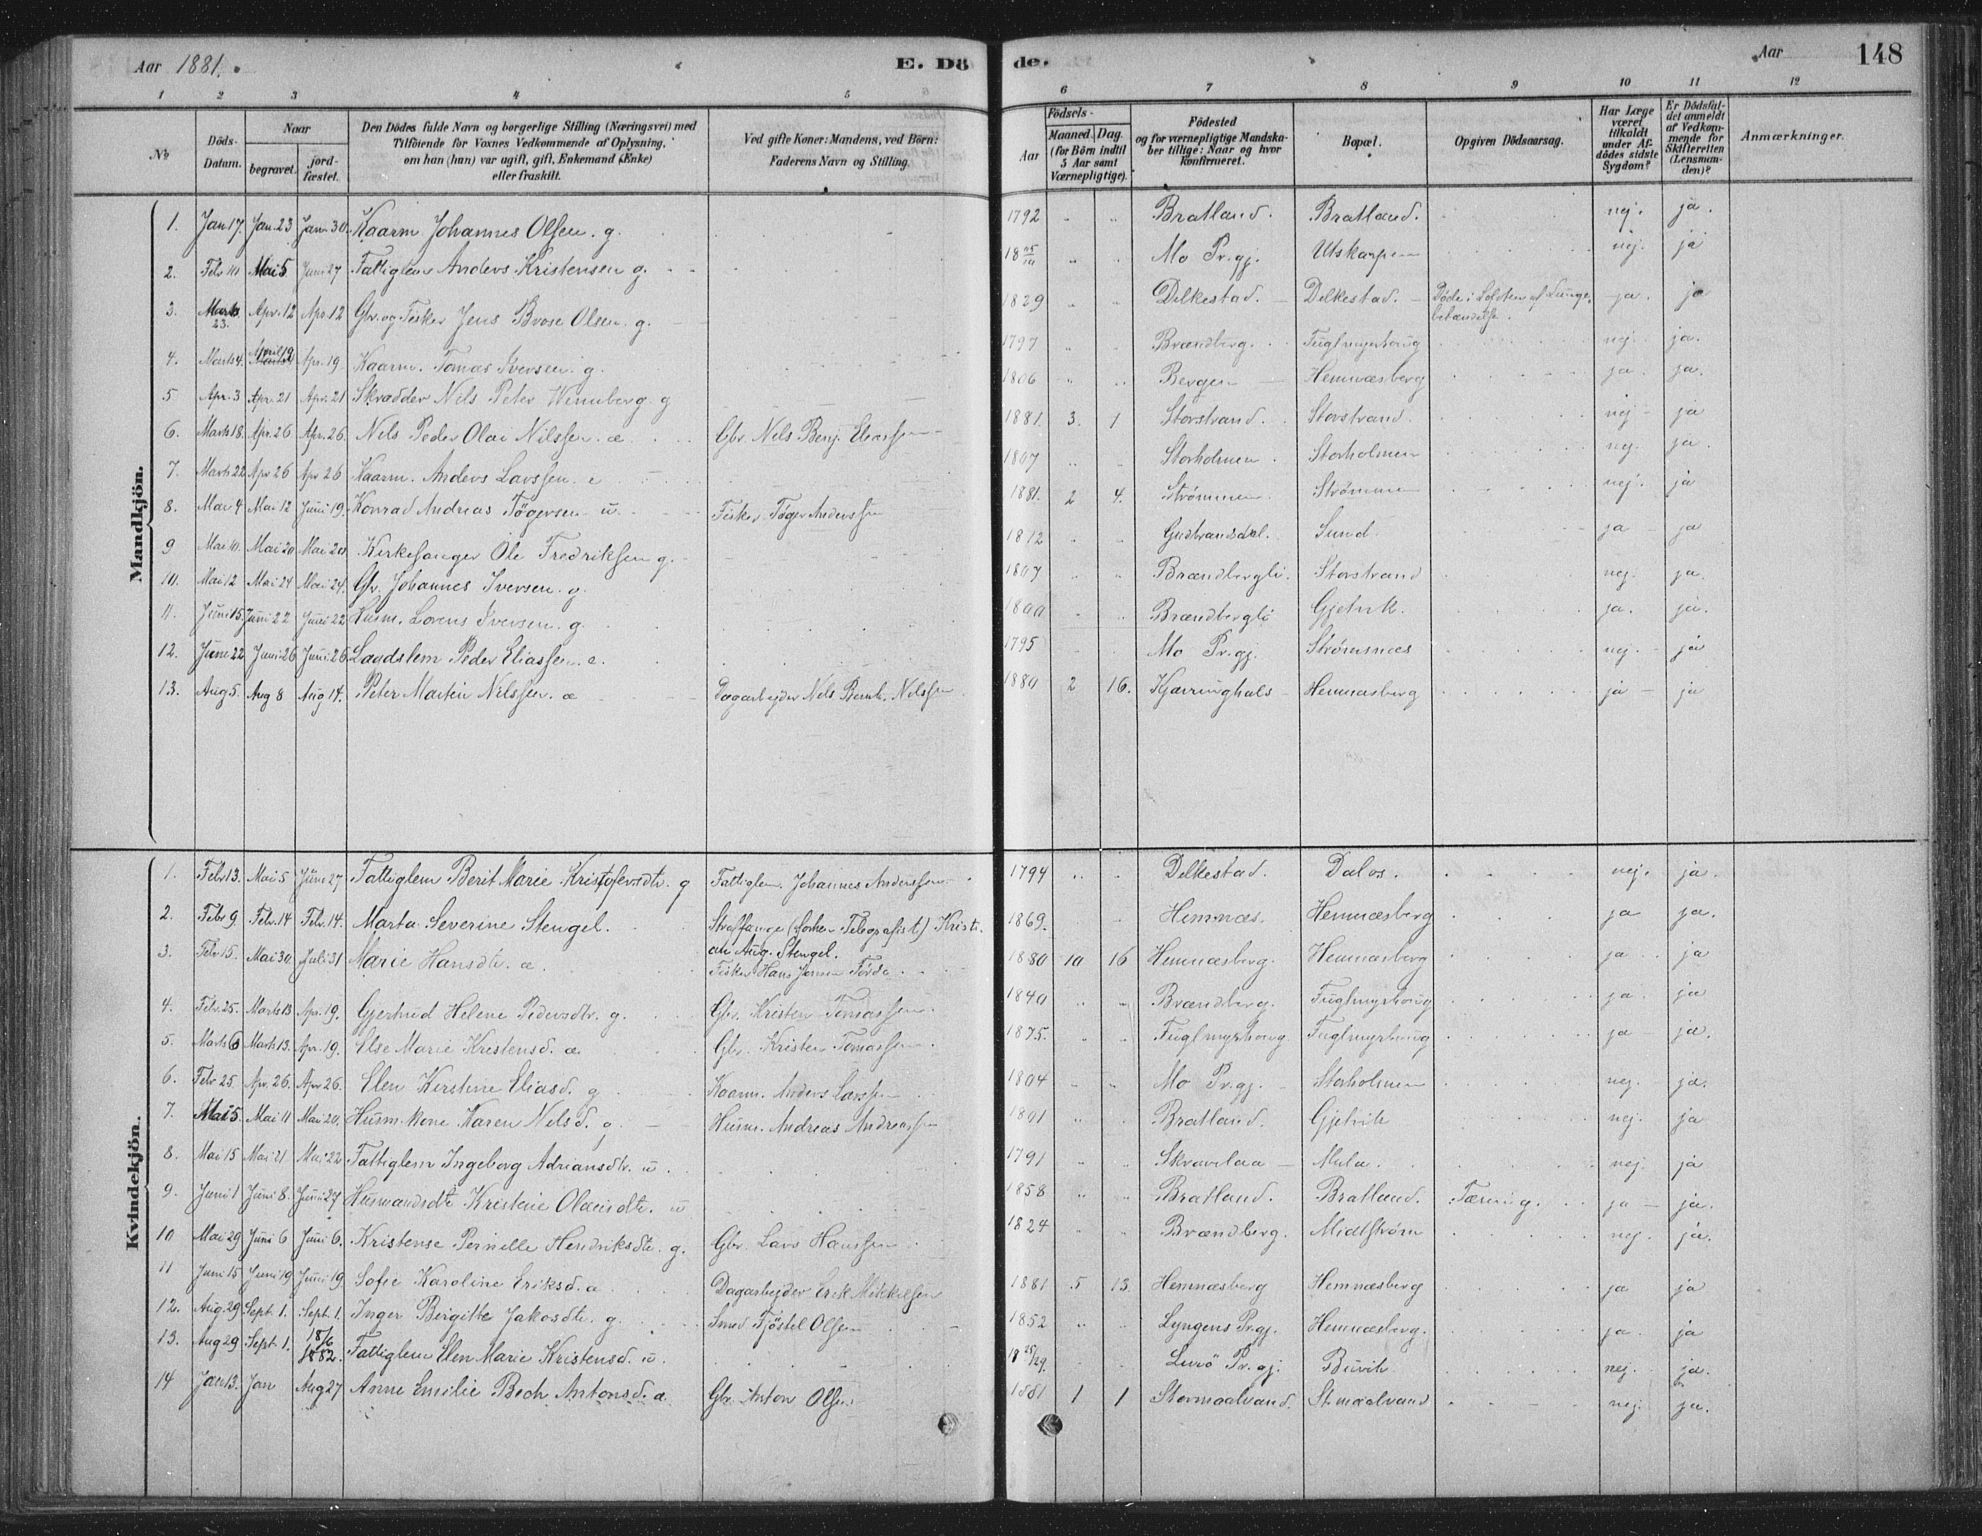 Aar 1881. E. Dö
de. Aar 148
1 2 3 4 5 6 7 8 9 10 11 12
№
Döds-
Datum.
Naar
begravet.
jord-
fæstet.
Den Dödes fulde Navn og borgerlige Stilling (Næringsvei) med
Tilföiende for Voxnes Vedkommende af Oplysning,
om han (hun) var ugift, gift, Enkemand (Enke)
eller fraskilt.
Ved gifte Koner: Mandens, ved Börn:
Faderens Navn og Stilling.
Födsels-
Aar
Maaned. Dag.
(for Börn indtil
5 Aar samt
Værnepligtige).
Födested
og for værnepligtige Mandska-
ber tillige: Naar og hvor
konfirmeret.
Bopæl.
Opgiven Dödsaarsag.
Har Læge
været
tilkaldt
under Af-
dödes sidste
Sygdom?
Er Dödsfal-
det anmeldt
af Vedkom-
mende for
Skifteretten
(Lensman-
den)?
Anmærkninger.
Mandkjön.
1. Jan 17. Jan. 23 Jan. 30. Kaarm Johannes Olsen. g. 1792 Bratland. Bratland. nej. ja.
2. Febr 10 Mai 5 Juni 27 Fattiglem Anders Kristensen g. 18 Mo Pr.gj. Utskarpen nej. ja
3. Marts 23. Apr. 12 Apr. 12 Gbr. og Fisker Jens Brose Olsen. g. 1829 Dilkestad. Dilkestad. Døde i Lofoten af Lunge-
betændelse. ja. ja
4. Marts 4. April 19 Apr. 19 Kaarm. Tomas Iversen. g. 1797 Brændberg. Fuglmyrhaug nej. ja.
5 Apr. 3 Apr. 21 Apr. 21 Skrædder Nils Peter Wennberg. g 1806 Bergen Hemnæsberg ja. ja.
6. Marts 18. Apr. 26 Apr. 26. Nils Peder Olai Nilssen. æ Gbr. Nils Benj. Eliassen 1881. 3. 1 Storstrand. Storstrand. nej ja
7. Marts 22 Apr 26 Apr 26 Kaarm. Anders Larssen. e 1807 Storholmen Storholmen nej. ja.
8. Mai 4 Mai 12 Juni 19. Konrad Andreas Tøgersen u. Fisker Tøger Anderssen 1881. 2 4. Strømmen. Strømmen nej. ja
9 Mai 10. Mai 20 Mai 20. Kirkesanger Ole Fredriksen g. 1812 Gudbransdal. Sund. ja ja
10. Mai 12 Mai 24 Mai 24. Gbr. Johannes Iversen. g. 1807 Brændbergli. Storstrand nej. ja.
11. Juni 15. Juni 22 Juni 22 Husm. Lorens Iversen. g. 1800 Brændbergli Gjetvik. ja. ja.
12. Juni 22 Juni 26 Juni 26. Lagdslem Peder Eliassen. e. 1795 Mo Pr.gj. Strømsnæs nej. ja
13. Aug 5. Aug 8 Aug 14. Peter Martin Nilssen. æ Dagarbejder Nils Bernh. Nilssen 1880 2 16. Kjærringhals Hemnæsberg ja ja
Kvindekjön.
1. Febr 13. Mai 5 Juni 27 Fattiglem Berit Marie Kristofersdtr. g Fattiglem. Johannes Anderssen 1794 Dilkestad. Dalos. nej. ja.
2. Febr 9. Febr. 14 Febr. 14. Marta Severine Stengel. Straffange (forhen Telegrafist) Kristi-
an Aug. Stengel. 1869. Hemnæs. Hemnæsberg ja ja.
3. Febr 15. Mai 30. Juli 31 Marie Hansdtr. æ. Fisker Hans Jensen Førde 1880 10 16 Hemnæsberg. Hemnæsberg ja ja
4. Febr. 25. Marts 13 Apr. 19. Gjertrud Helene Pedersdtr. g. Gbr. Kristen Tomassen. 1840 Brændberg. Fuglmyrhaug ja. ja
5. Marts 6 Marts 13. Apr. 19. Else Marie Kristensd. æ. Gbr. Kristen Tomassen. 1875. Fuglmyrhaug Fuglmyrhaug ja ja.
6. Febr. 25. Apr. 26. Apr 26. Elen Kirstine Eliasd. g Kaarm. Anders Larssen 1804 Mo Pr.gj. Storholmen nej. ja.
7. Mai 5. Mai 11 Mai 20. Husm.kone Karen Nilsd. g Husm. Andreas Andreassen 1801 Bratland. Gjetvik nej. ja
8. Mai 15 Mai 21 Mai 22 Fattiglem Ingeborg Adriansdtr. u. 1791 Skravlaa Mula. nej. ja
9. Juni 1 Juni 8. Juni 27 Husmandsdtr Kristine Olausdtr. u 1858 Bratland. Bratland. Tæring. ja ja.
10 Mai 29 Juni 6 Juni 6. Kristense Pernille Hendriksdtr. g. Gbr. Lars Hanssen 1824 Brændberg. Midtstrøm nej. ja.
11 Juni 15 Juni 19 Juni 19 Sofie Karoline Eriksd. æ Dagarbejder Erik Mikkelsen 1881 5 13. Hemnæsberg Hemnæsberg ja ja
12. Aug. 29 Sept. 1. Sept. 1. Inger Birgitte Jakobsdtr. g. Smed Fjøstel Olsen 1852 Lyngens Pr.gj. Hemnæsberg. ja. ja
13. Aug 29 Sept. 1 18/6 1882. Fattiglem Elen Marie Kristensd. u. 18 25/29. Lurö Pr.gj. Burvik nej. ja.
14 Jan 13. Jan Aug 27 Anne Emilie Bech Antonsd. æ. Gbr. Anton Olsen 1881 1 1 Stormaalvand. St.maalvand nej. ja.